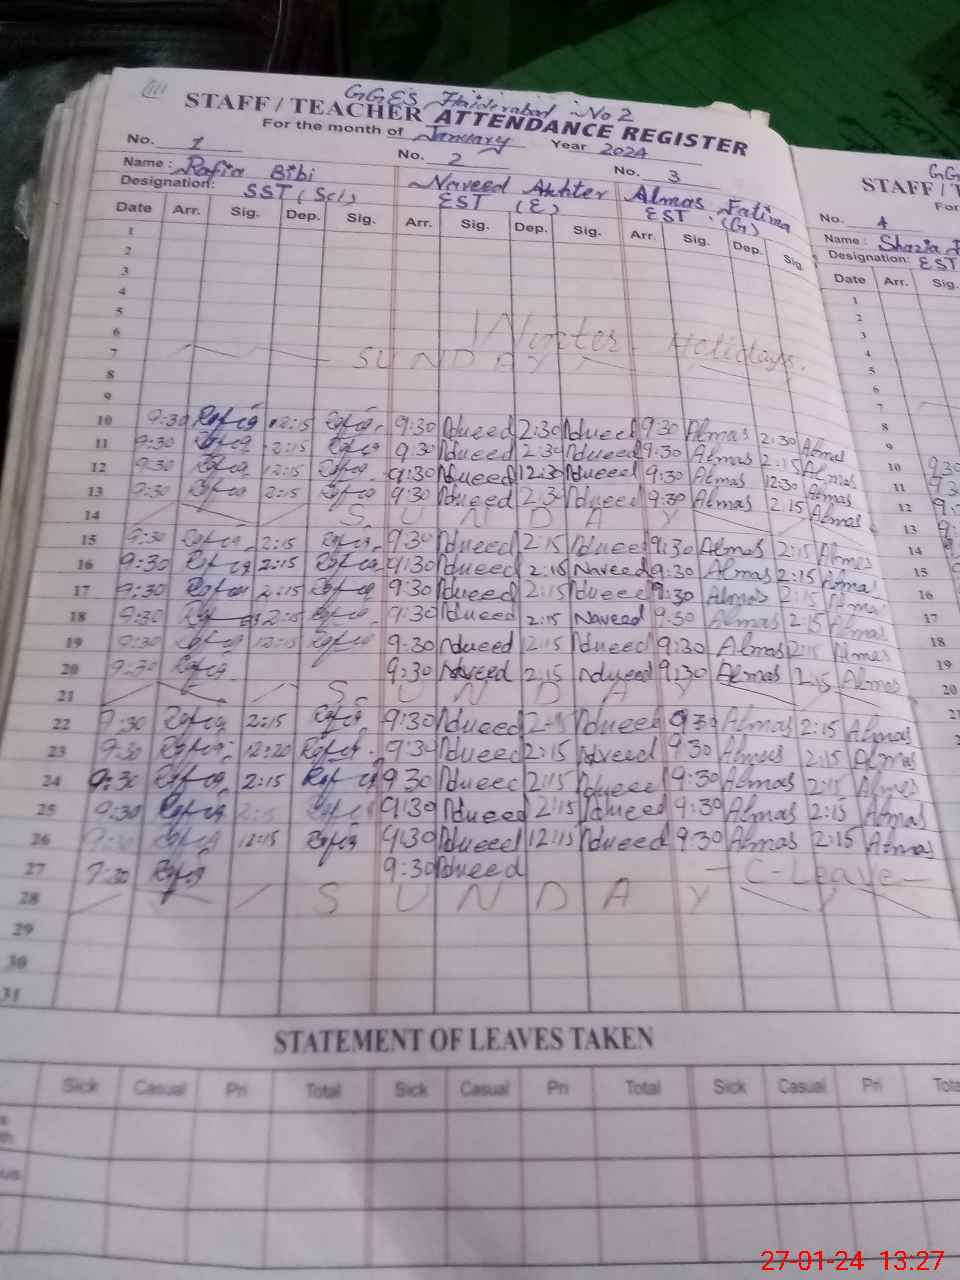 GGES Haiderabad No 2
STAFF / TEACHER ATTENDANCE REGISTER
For the month of January Year 2024
No. 1 No. 2 No. 3
Name : Rafia Bibi Naveed Akhter Almas Fatima
Designation: SST (Sci) EST (E) EST (G)
Date Arr. Sig. Dep. Sig. Arr. Sig. Dep. Sig. Arr. Sig. Dep. Sig.
1
2
3
4
5
6 Winter Holidays.
7 SUNDAY
8
9
10 9:30 Rafia 2:15 Rafia 9:30 Naveed 2:30 Naveed 9:30 Almas 2:30 Almas
11 9:30 Rafia 2:15 Rafia 9:30 Naveed 2:30 Naveed 9:30 Almas 2:15 Almas
12 9:30 Rafia 12:15 Rafia 9:30 Naveed 12:30 Naveed 9:30 Almas 12:30 Almas
13 9:30 Rafia 2:15 Rafia 9:30 Naveed 2:30 Naveed 9:30 Almas 2:15 Almas
14 SUNDAY
15 9:30 Rafia 2:15 Rafia 9:30 Naveed 2:15 Naveed 9:30 Almas 2:15 Almas
16 9:30 Rafia 2:15 Rafia 9:30 Naveed 2:15 Naveed 9:30 Almas 2:15 Almas
17 9:30 Rafia 2:15 Rafia 9:30 Naveed 2:15 Naveed 9:30 Almas 2:15 Almas
18 9:30 Rafia 2:15 Rafia 9:30 Naveed 2:15 Naveed 9:30 Almas 2:15 Almas
19 9:30 Rafia 12:15 Rafia 9:30 Naveed 12:15 Naveed 9:30 Almas 2:15 Almas
20 9:30 Rafia 9:30 Naveed 2:15 Naveed 9:30 Almas 2:15 Almas
21 SUNDAY
22 9:30 Rafia 2:15 Rafia 9:30 Naveed 2:15 Naveed 9:30 Almas 2:15 Almas
23 9:30 Rafia 12:20 Rafia 9:30 Naveed 2:15 Naveed 9:30 Almas 2:15 Almas
24 9:30 Rafia 2:15 Rafia 9:30 Naveed 2:15 Naveed 9:30 Almas 2:15 Almas
25 9:30 Rafia 2:15 Rafia 9:30 Naveed 2:15 Naveed 9:30 Almas 2:15 Almas
26 9:30 Rafia 12:15 Rafia 9:30 Naveed 12:15 Naveed 9:30 Almas 2:15 Almas
27 9:30 Rafia 9:30 Naveed C-Leave
28 SUNDAY
29
30
31
STATEMENT OF LEAVES TAKEN
Sick Casual Pri Total Sick Casual Pri Total Sick Casual Pri
STAFF /
No. 4
Name : Shazia
Designation: EST
Date Arr. Sig.
1
2
3
4
5
6
7
8
9
10 9:30
11
12
13
14
15
16
17
18
19
20
27-01-24 13:27